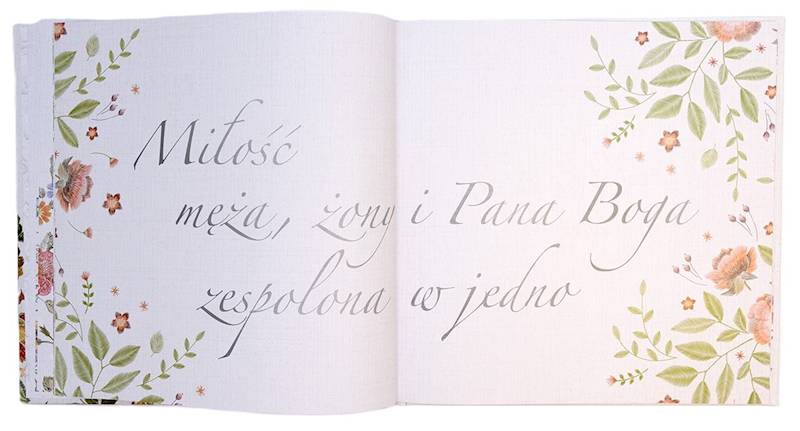 Miłość
męża, żony i Pana Boga
zespolona w jedno